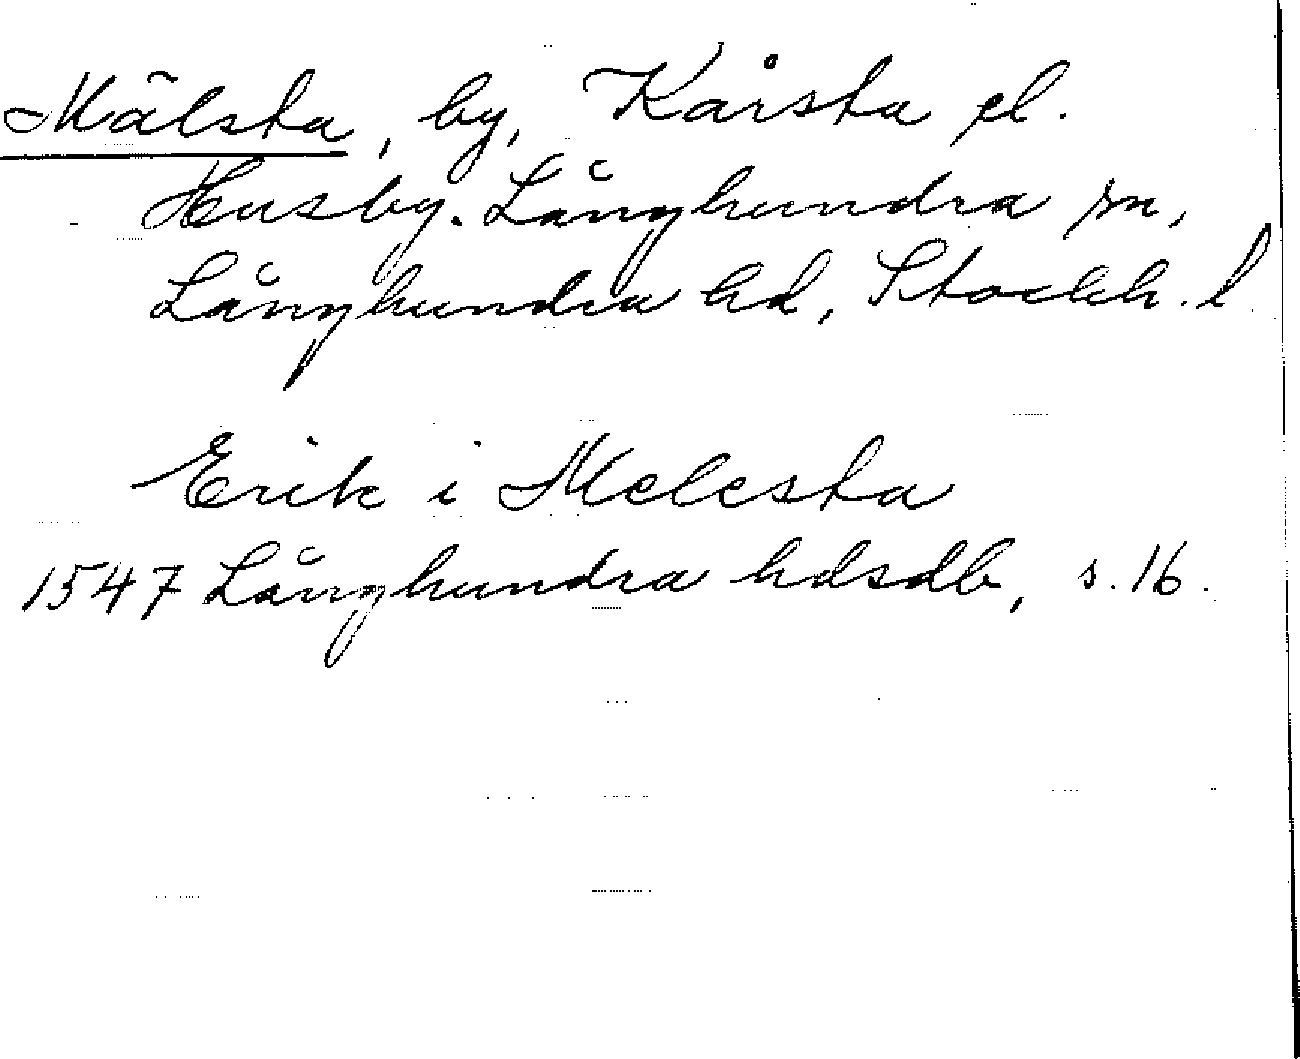 Mälsta, by, Kårsta el.
Husby-Långhundra sn,
Långhundra hd, Stockh. l.
Erik i Melesta
1547 Långhundra hdsdb, s. 16.